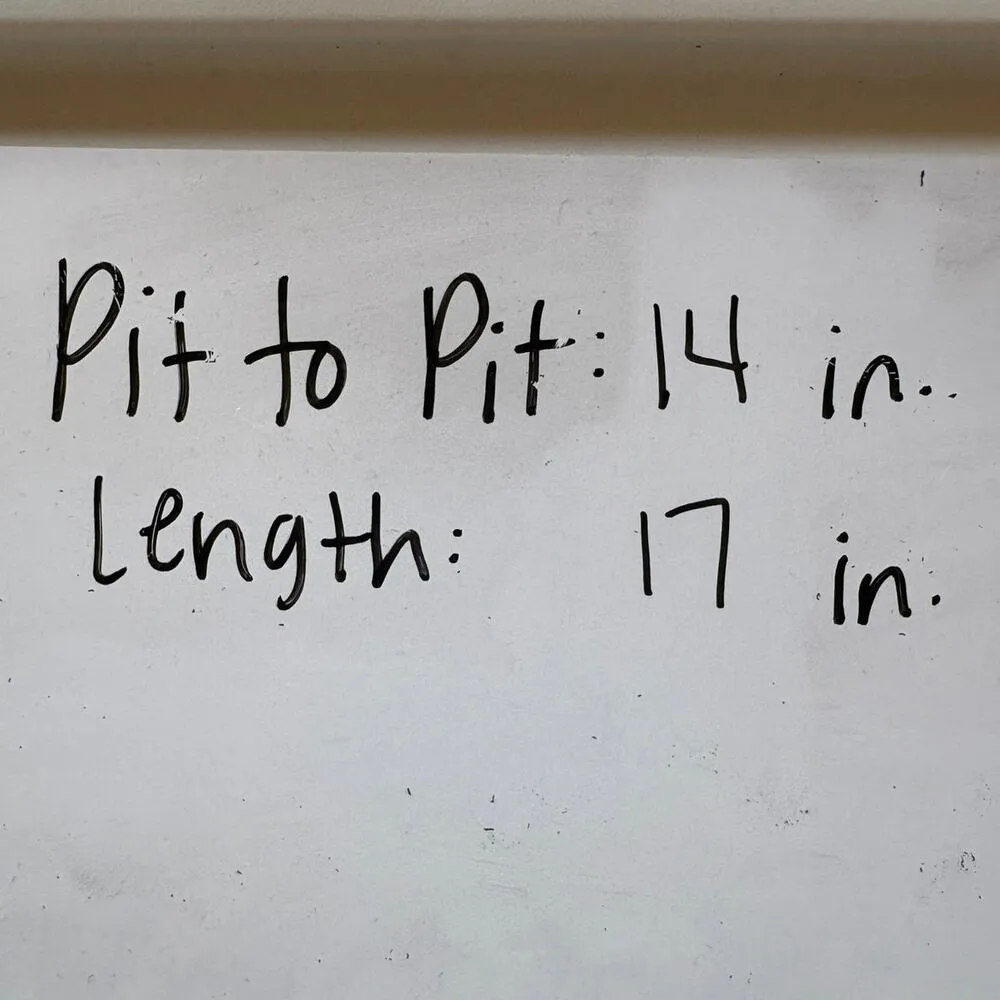 Pit to Pit: 14 in.
Length: 17 in.